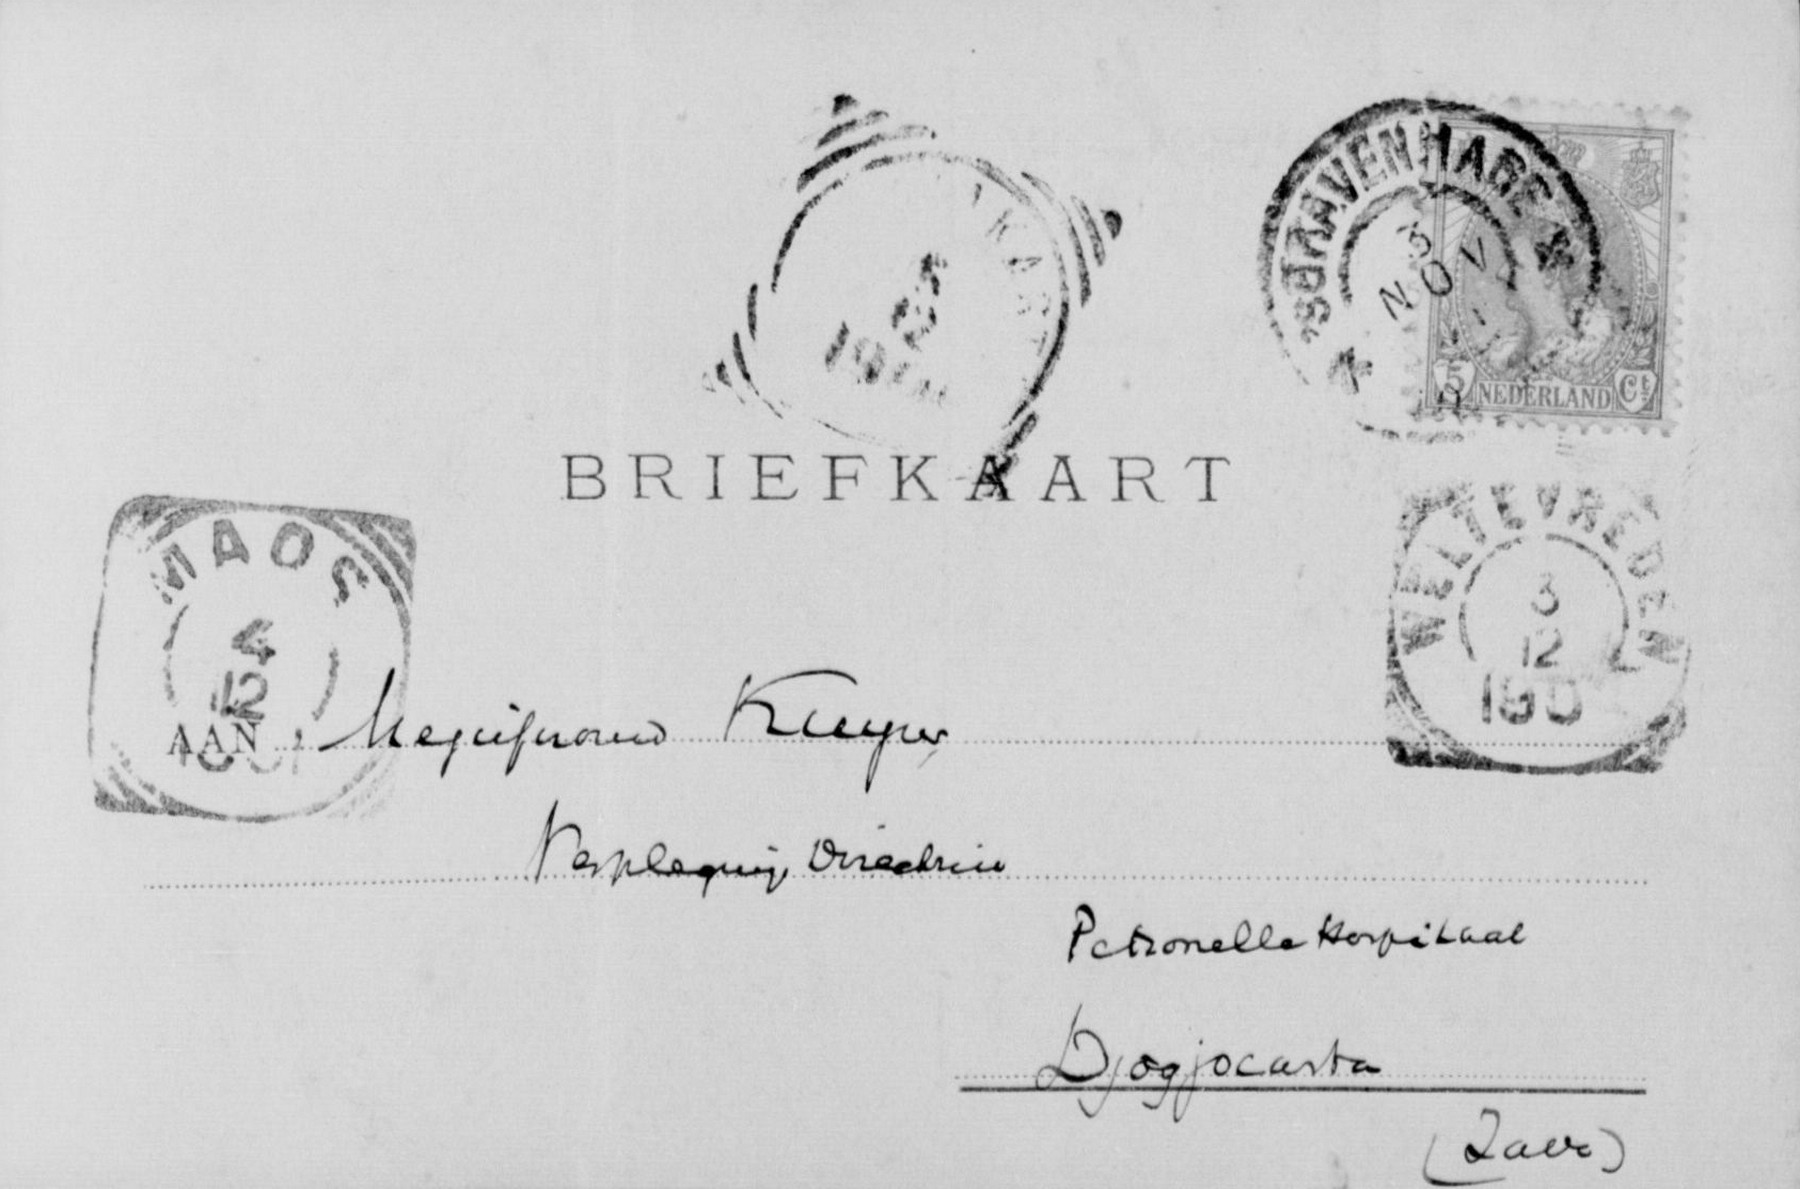 'SGRAVENHAGE
3
NOV
5
NEDERLAND
Ct
BRIEFKAART
MAOS
4
12
WELTEVREDEN
3
12
190
AAN Mejufvrouw Kuyper
Verpleging Directrice
Petronella Hospitaal
Djogjocarta
(Java)